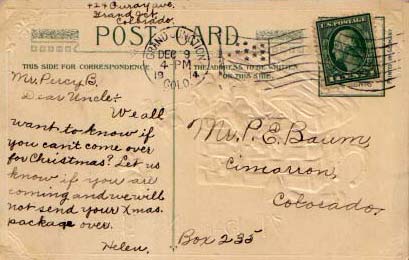 424 Ouray ave.
Grand Jct.
Colorado.
POST CARD
THIS SIDE FOR CORRESPONDENCE.
THE ADDRESS TO BE WRITTEN
ON THIS SIDE.
GRAND JUNCTION
DEC 9
4-PM
19 14
COLO.
Mr. Percy B.
Dear Uncle:
We all
want to know if
you can't come over
for Christmas? Let us
know if you are
coming and we will
not send your Xmas.
package over.
Helen.
Mr. P. E. Baum,
Cimarron,
Colorado.
Box 235